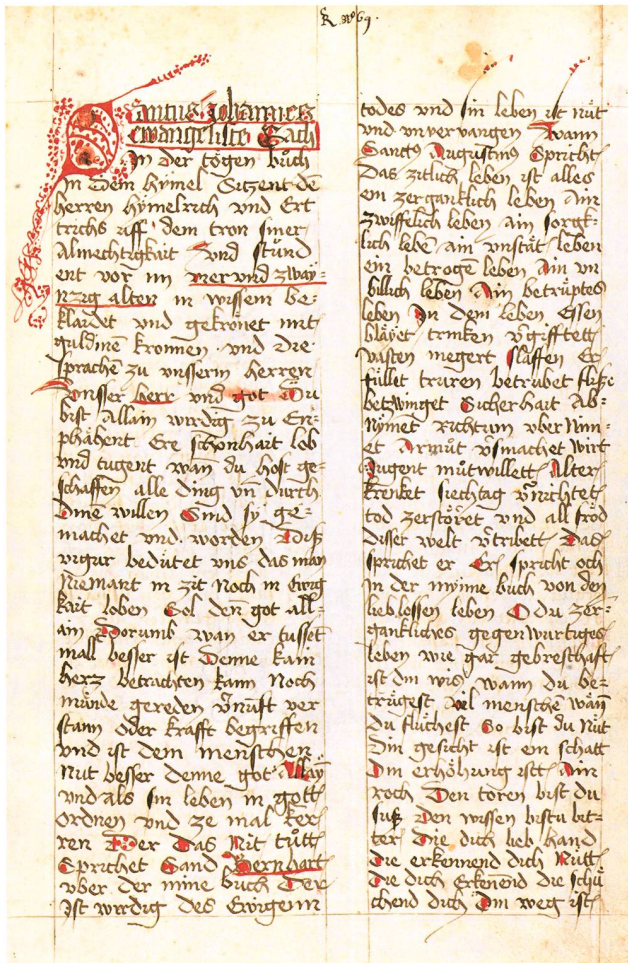 Sanctus Johannes
ewangeliste Sach
In der tögen büch
in dem hymel Sitzent de
herren hymelrich vnd Ert
trichs vff dem tron siner
Almechtigkait vnd stund
ent vor im vier vnd zway-
nzig alten in wissem be-
klaidet vnd gekrönet mit
guldinē kronnen vnd die
sprachē zu vnsserm herren
vnsser herr vnd got Du
bist Allain wirdig zu En-
phahent Ere schonhait lob
vnd tugent wan du host ge-
schaffen alle ding vn̄ durch
Dine willen Sind sy ge-
machet vnd worden Diß
vigur bedütet vns das man
Niemant in zit Noch in Ewig
kait loben Sol den got all-
ain Dorumb wan er tussent
mall besser ist Denne kain
herz betrachten kann Noch
munde gereden v̄nufft ver
stann oder krafft begriffen
vnd ist dem menschen
Nut besser denne got Allay
vnd als sin leben in gott
ordnen vnd ze mal kex-
ren Der Das Nit tütt
Sprichet Sand Bernhart
vber der mine buch Der
Ist wirdig des Ewigenn
todes vnd sin leben ist nüt
vnd vnvervangen Wann
Sanctus Augustinus Spricht
Das zitlich leben ist alles
ein zerganklich leben Ain
zwiffelich leben ain sorgk-
lich lebē ain vnstät leben
ein betrogē leben Ain vn
billich leben Ain betrüptes
leben In dem leben Essen
bläyet trinken v̄gifftett
vasten megert slaffen Er
füllet truren betrübet
betzwinget Sicherhait Ab-
Nymet Richtum vber Nim-
et Armüt v̄smachet wirt
Jugent mütwillett Alter
krenket siechtag v̄nichtet
tod zerstöret vnd all fröd
disser welt v̄tribett Das
sprichet er Er spricht och
in der mynne buch von den
lieblossen leben O du zer-
gankliches gegenwurtiges
leben wie gar gebresthafft
ist din wis wann du be-
trügest vil menschē wān
Du flüchest So bist du Nüt
Din gesicht ist ein schatt
Din erhöhung istt Ain
roch Den toren bist du
süß Den wissen bistu bit-
ter Die dich lieb hand
Die erkennend dich Nütt
Die dich Erkenēd die schü
chend dich Din weg ist